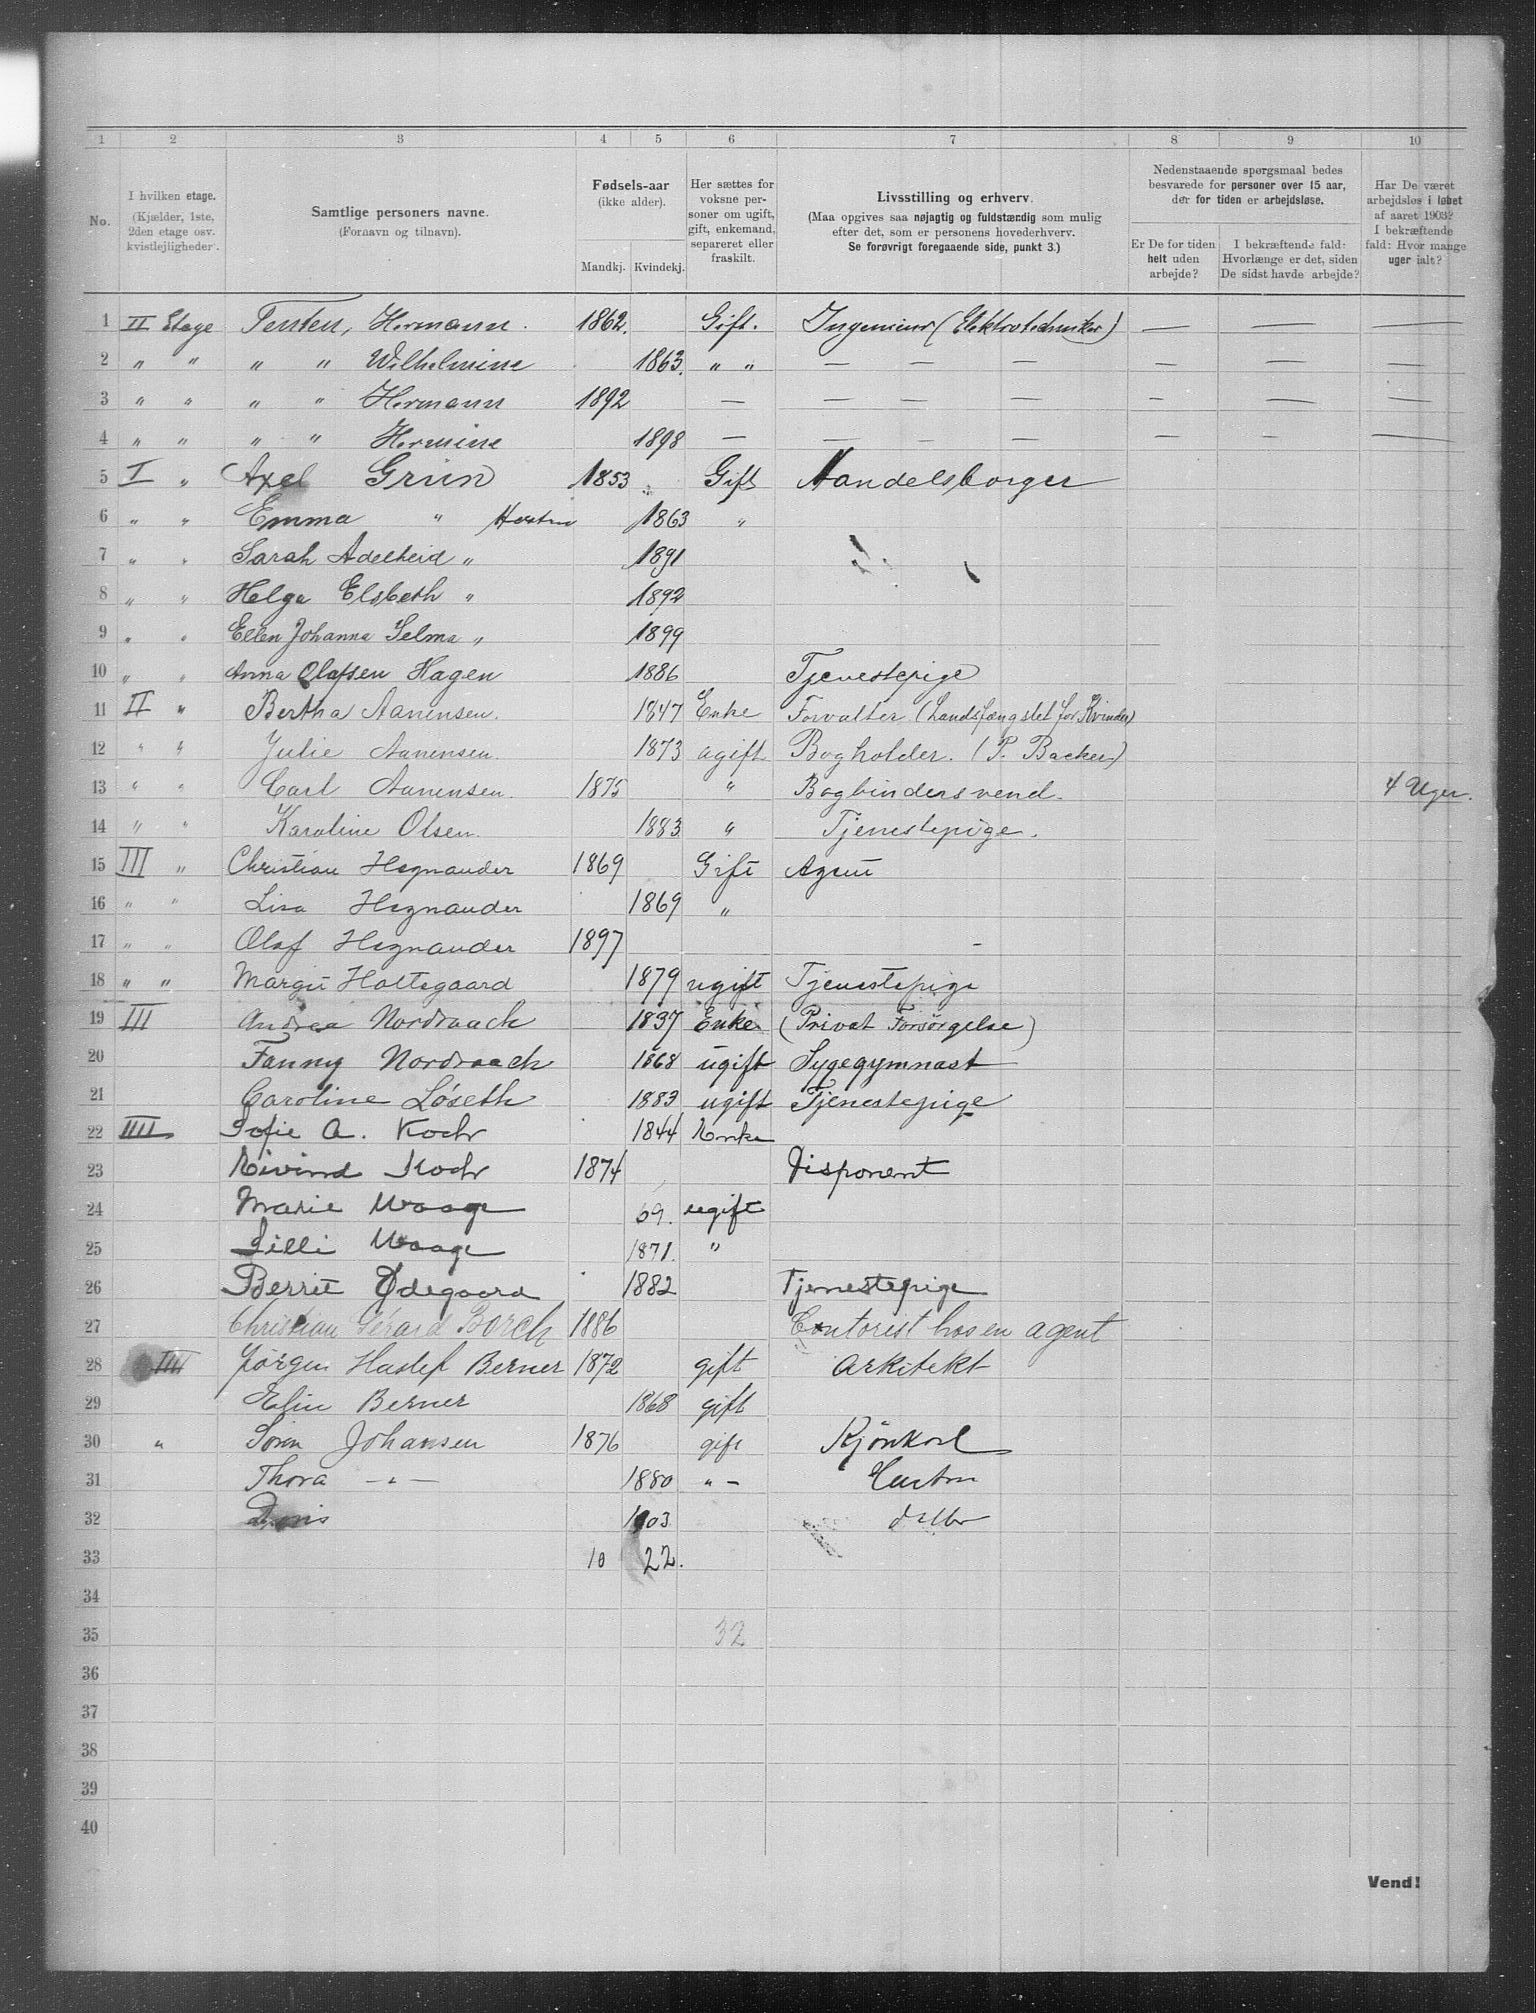 1 2 3 4 5 6 7 8 9 10
No.
I hvilken etage.
(Kjælder, 1ste,
2den etage osv.
kvistlejligheder.
Samtlige personers navne.
(Fornavn og tilnavn).
Fødsels-aar
(ikke alder).
Mandkj. Kvindekj.
Her sættes for
voksne per-
soner om ugift,
gift, enkemand,
separeret eller
fraskilt.
Livsstilling og erhverv.
(Maa opgives saa nøjagtig og fuldstændig som mulig
efter det, som er personens hovederhverv.
Se forøvrigt foregaaende side, punkt 3.)
Nedenstaaende spørgsmaal bedes
besvarede for personer over 15 aar,
der for tiden er arbejdsløse.
Er De for tiden
helt uden
arbejde?
I bekræftende fald:
Hvorlænge er det, siden
De sidst havde arbejde?
Har De været
arbejdsløs i løbet
af aaret 1903?
I bekræftende
fald: Hvor mange
uger ialt?
1 II Etage Tenten, Hermann. 1862. Gift. Ingeniør (Elektrotekniker) — — —
2 " " " " Wilhelmine 1863. " " — — — — — —
3 " " " " Hermann 1892 — — — — - — —
4 " " " " Hermine 1898 — — — — — — —
5 I " Axel Grün 1853 Gift Handelsborger
6 " " Emma " Hustru 1863 "
7 " " Sarah Adelheid " 1891
8 " " Helga Elsbeth " 1892
9 " " Ellen Johanna Selma " 1899
10 " " Anna Olafsen Hagen 1886 Tjenestepige
11 II " Bertha Aanensen. 1847 Enke Forvalter (Landsfængslet for Kvinder)
12 " " Julie Aanensen. 1873 ugift Bogholder. (P. Backer)
13 " " Carl Aanensen. 1875 " Bogbindersvend. 4 Uger.
14 " " Karoline Olsen. 1883. " Tjenestepige.
15 III " Christian Hegnander 1869 Gift Agent
16 " " Lisa Hegnander 1869 "
17 " " Olaf Hegnander 1897 -
18 " " Margit Holtegaard 1879 ugift Tjenestepige
19 III Andrea Nordraach 1837 Enke (Privat Forsørgelse)
20 Fanny Nordraach 1868 ugift Sygegymnast
21 Caroline Løseth 1883 ugift Tjenestepige
22 IIII Sofie A. Koch 1844 Enke
23 Eivind Koch 1874 Disponent
24 Marie Waage 69. ugift
25 Lilli Waage 1871. "
26 Berrit Ødegaard 1882 Tjenestepige
27 Christian Gérard Borch 1886 Contorist hos en agent
28 IIII Jørgen Haslef Berner 1872 gift Arkitekt
29 Elin Berner 1868 gift
30 " Søren Johansen 1876 gift
31 Thora —"— 1880 " – Hustru
32 Doris 1903 datter
33 10 22.
34
35 32
36
37
38
39
40
Vend!